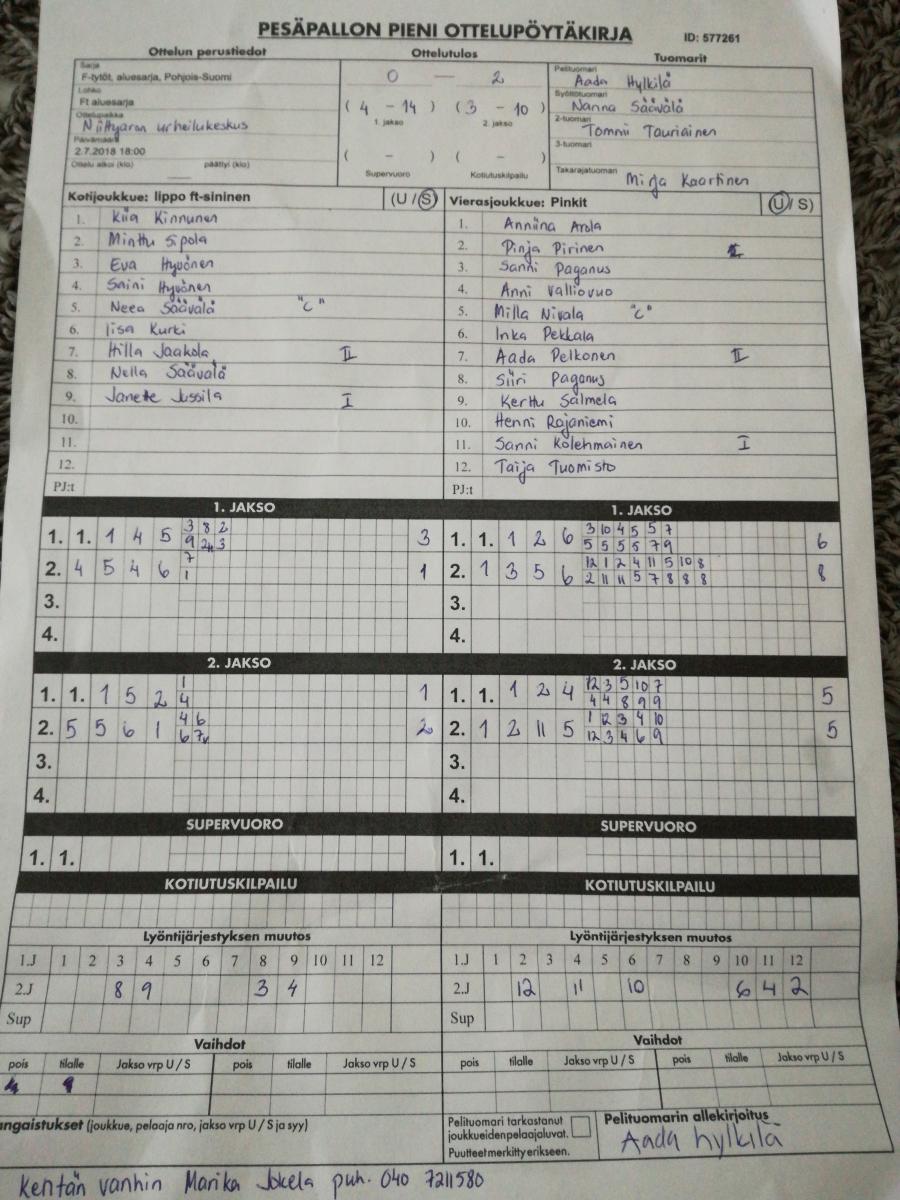 PESÄPALLON PIENI OTTELUPÖYTÄKIRJA ID: 577261
Ottelun perustiedot Ottelutulos Tuomarit
Sarja
F-tytöt, aluesarja, Pohjois-Suomi
Lohko
Ft aluesarja
Ottelupaikka
Niittyaron urheilukeskus
Päivämäärä
2.7.2018 18:00
Ottelu alkoi (klo) päättyi (klo)
0 — 2
( 4 - 14 ) ( 3 - 10 )
1. jakso 2. jakso
( - ) ( - )
Supervuoro Kotiutuskilpailu
Pelituomari
Aada Hylkilä
Syöttötuomari
Nanna Säävälä
2-tuomari
Tommi Tauriainen
3-tuomari
Takarajatuomari
Mirja Kaartinen
Kotijoukkue: lippo ft-sininen (U / S)
1. Kiia Kinnunen
2. Minttu Sipola
3. Eva Hyvönen
4. Saini Hyvönen
5. Neea Säävälä "C"
6. Iisa Kurki
7. Hilla Jaakola II
8. Nella Säävälä
9. Janette Jussila I
10.
11.
12.
PJ:t
Vierasjoukkue: Pinkit (U / S)
1. Anniina Arola
2. Pinja Pirinen
3. Sanni Paganus
4. Anni Valliovuo
5. Milla Nivala "C"
6. Inka Pekkala
7. Aada Pelkonen II
8. Siiri Paganus
9. Kerttu Salmela
10. Henni Rajaniemi
11. Sanni Kolehmainen I
12. Taija Tuomisto
PJ:t
1. JAKSO
3 8 2
1. 1. 1 4 5 3
9
7
2. 4 5 4 6 1
1
3.
4.
1. JAKSO
3 10 4 5 5 7
1. 1. 1 2 6 6
5 5 5 5 7 9
12 1 2 4 11 5 10 8
2. 1 3 5 6 8
2 11 11 5 7 8 8 8
3.
4.
2. JAKSO
1
1. 1. 1 5 2 1
4
4 6
2. 5 5 6 1 2
6
3.
4.
2. JAKSO
12 3 5 10 7
1. 1. 1 2 4 5
4 4 8 9 9
1 12 3 4 10
2. 1 2 11 5 5
12 3 4 6 9
3.
4.
SUPERVUORO SUPERVUORO
1. 1. 1. 1.
KOTIUTUSKILPAILU KOTIUTUSKILPAILU
Lyöntijärjestyksen muutos
1.J 1 2 3 4 5 6 7 8 9 10 11 12
2.J 8 9 3 4
Sup
Lyöntijärjestyksen muutos
1.J 1 2 3 4 5 6 7 8 9 10 11 12
2.J 12 11 10 6 4 2
Sup
Vaihdot Vaihdot
pois tilalle Jakso vrp U / S pois tilalle Jakso vrp U / S
pois tilalle Jakso vrp U / S pois tilalle Jakso vrp U / S
4 9
ngaistukset (joukkue, pelaaja nro, jakso vrp U / S ja syy)
Pelituomari tarkastanut
joukkueiden pelaajaluvat.
Puutteet merkitty erikseen.
Pelituomarin allekirjoitus
Aada hylkilä
Kentän vanhin Marika Jokela puh. 040 7211580